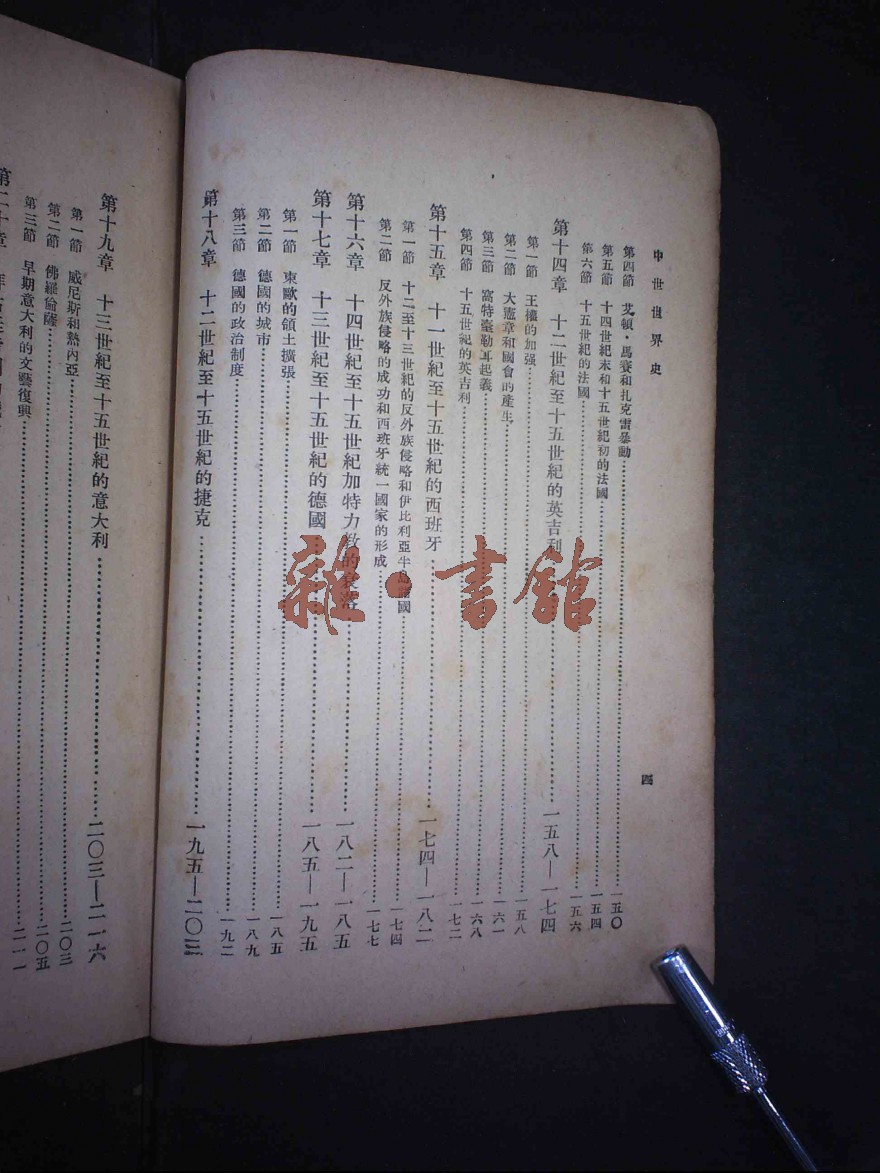 中世世界史
四
第四節 艾頓·馬賽和扎克雷暴動 一五〇
第五節 十四世紀末和十五世紀初的法國 一五四
第六節 十五世紀的法國 一五六
第十四章 十二世紀至十五世紀的英吉利 一五八—一七四
第一節 王權的加強 一五八
第二節 大憲章和國會的產生 一六一
第三節 窩特·臺勒耳起義 一六八
第四節 十五世紀的英吉利 一七二
第十五章 十一世紀至十五世紀的西班牙 一七四—一八二
第一節 十二至十三世紀的反外族侵略和伊比利亞半島諸國 一七四
第二節 反外族侵略的成功和西班牙統一國家的形成 一七七
第十六章 十四世紀至十五世紀加特力教的衰落 一八二—一八五
第十七章 十三世紀至十五世紀的德國 一八五—一九五
第一節 東歐的領土擴張 一八五
第二節 德國的城市 一八九
第三節 德國的政治制度 一九二
第十八章 十二世紀至十五世紀的捷克 一九五—二〇三
第十九章 十三世紀至十五世紀的意大利 二〇三—二一六
第一節 威尼斯和熱內亞 二〇三
第二節 佛羅倫薩 二〇五
第三節 早期意大利的文藝復興 二一一
第二十章
雜·書館